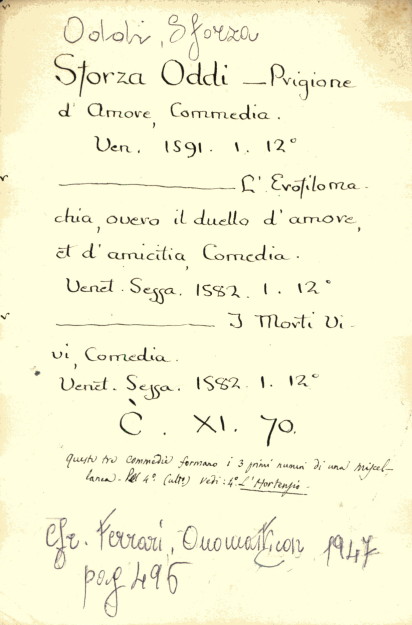 Oddi, Sforza
Sforza Oddi — Prigione
d'Amore, Commedia.
Ven. 1591. 1. 12°
——— L'Erofiloma-
chia, overo il duello d'amore,
et d'amicitia, Comedia.
Venet. Sessa. 1582. 1. 12°
——— I Morti Vi-
vi, Comedia.
Venet. Sessa. 1582. 1. 12°
C̀. XI. 70.
Queste tre commedie formano i 3 primi numeri di una miscel-
lanea. Pel 4° (altro) vedi: 4° L'Hortensio.
Cfr. Ferrari, Onomasticon 1947
pag 495